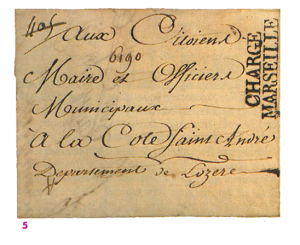 aux Citoiens
6190
Maire et Officiers
Municipaux
à la Cote Saint André
Departement de Lozere
CHARGE
MARSEILLE
5